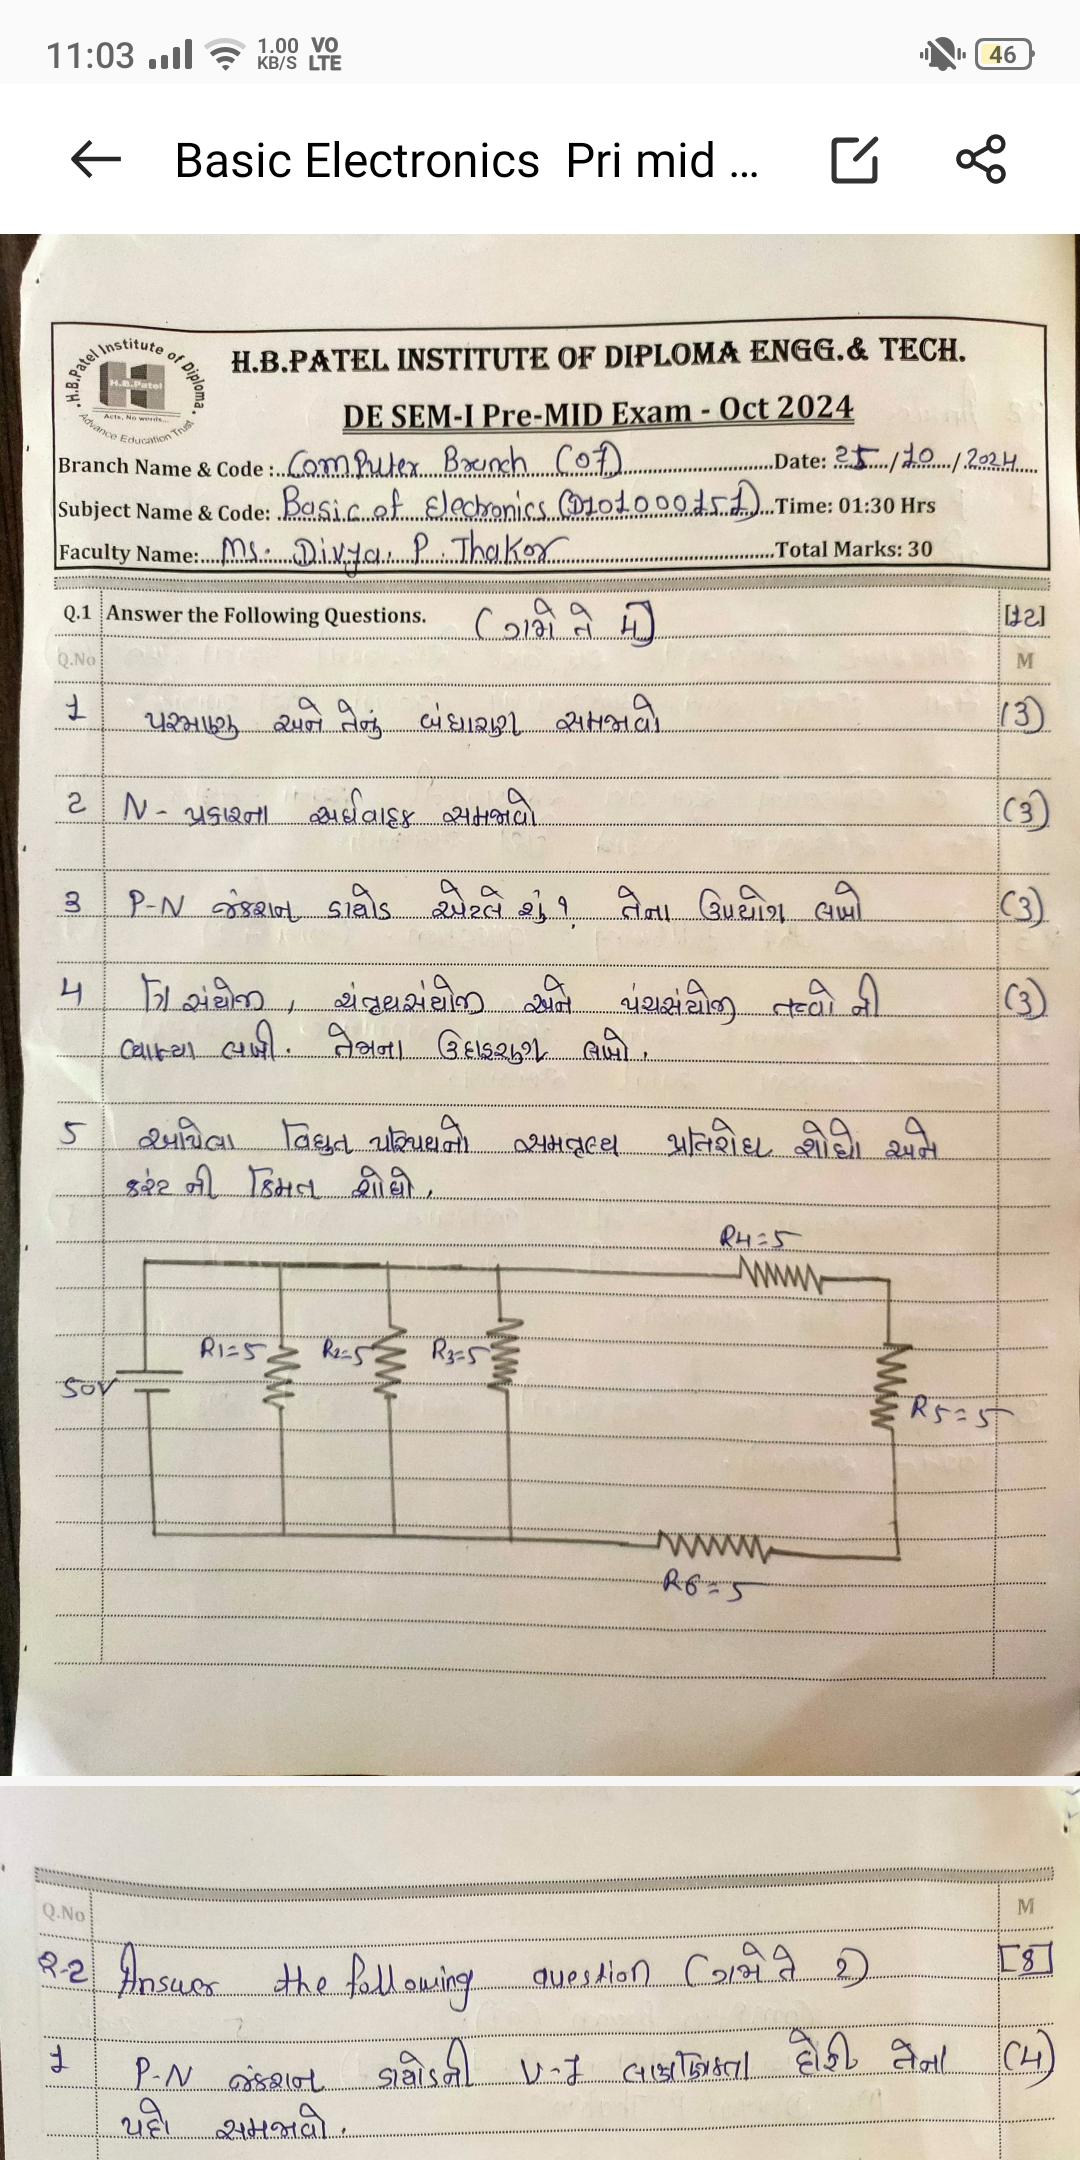 11:03 1.00 KB/S VO LTE 46
Basic Electronics Pri mid ...
H.B.Patel Institute of Diploma
H.B.Patel
Acts, No words...
Advance Education Trust
H.B.PATEL INSTITUTE OF DIPLOMA ENGG.& TECH.
DE SEM-I Pre-MID Exam - Oct 2024
Branch Name & Code :..Computer Branch (07)...Date: 25.../10.../.2024....
Subject Name & Code: .Basic of Electronics (DI01000151)...Time: 01:30 Hrs
Faculty Name:....Ms. Divya. P. Thakor...Total Marks: 30
Q.1 Answer the Following Questions. (ગમે તે 4) [12]
Q.No M
1 પરમાણુ અને તેનું બંધારણ સમજાવો (3)
2 N- પ્રકારના અર્ધવાહક સમજાવો (3)
3 P-N જંકશન ડાયોડ એટલે શું? તેના ઉપયોગ લખો (3)
4 ત્રિ સંયોજી, ચતુર્થસંયોજી અને પંચસંયોજી તત્વો ની (3)
વ્યાખ્યા લખી. તેમના ઉદાહરણ લખો.
5 આપેલા વિદ્યુત પરિપથનો સમતુલ્ય પ્રતિરોધ શોધો અને
કરંટ ની કિંમત શોધો.
R4=5
R1=5 R2=5 R3=5
50V
R5=5
R6=5
Q.No M
Q-2 Answer the following question (ગમે તે 2) [8]
1 P-N જંકશન ડાયોડની V-I લાક્ષણિકતા દોરી તેના (4)
પદો સમજાવો.